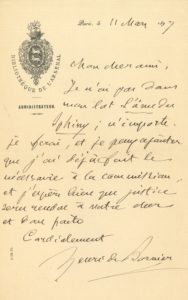 BIBLIOTHÈQUE DE L'ARSENAL
ADMINISTRATEUR
Paris, le 11 Mars 97
Mon cher ami,
Je n'ai pas dans
mon lot L'âme du
Sphinx; n'importe.
je ferai, et je puis ajouter
que j'ai déjà fait le
nécessaire à la commission,
et j'espère bien que justice
sera rendue à notre cher
et bon
Cordialement
Henri de Bornier